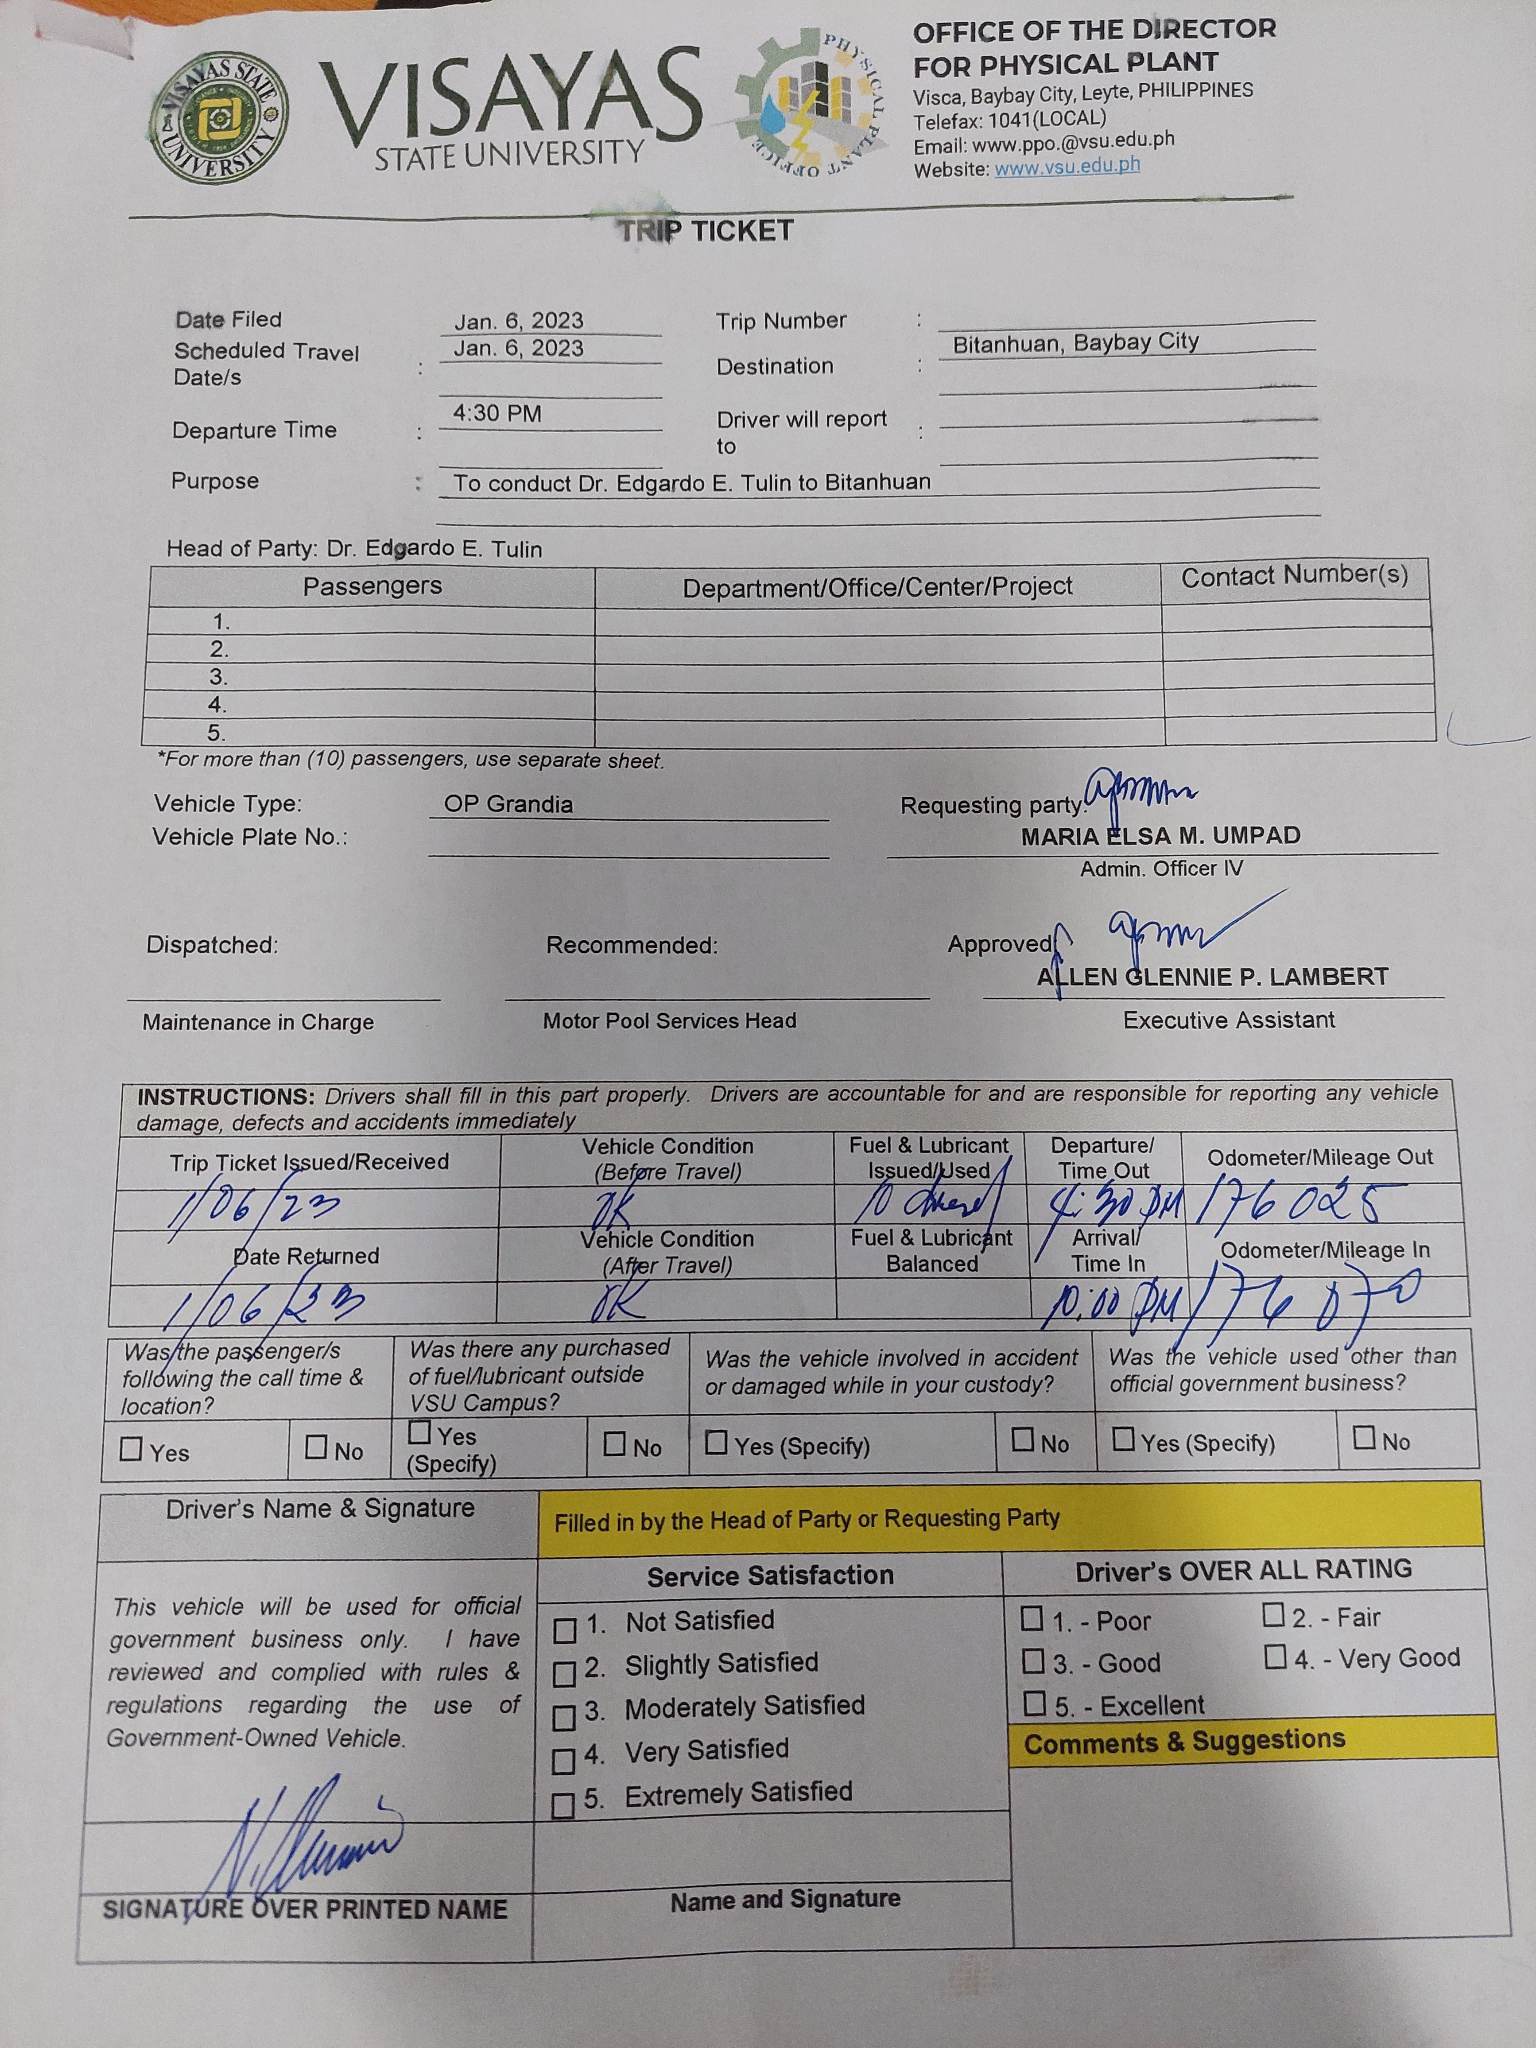 VISAYAS STATE UNIVERSITY
VISAYAS
STATE UNIVERSITY
PHYSICAL PLANT OFFICE
OFFICE OF THE DIRECTOR
FOR PHYSICAL PLANT
Visca, Baybay City, Leyte, PHILIPPINES
Telefax: 1041(LOCAL)
Email: www.ppo.@vsu.edu.ph
Website: www.vsu.edu.ph
TRIP TICKET
Date Filed Jan. 6, 2023 Trip Number :
Scheduled Travel Date/s : Jan. 6, 2023 Destination : Bitanhuan, Baybay City
Departure Time : 4:30 PM Driver will report to :
Purpose : To conduct Dr. Edgardo E. Tulin to Bitanhuan
Head of Party: Dr. Edgardo E. Tulin
Passengers Department/Office/Center/Project Contact Number(s)
1.
2.
3.
4.
5.
*For more than (10) passengers, use separate sheet.
Vehicle Type: OP Grandia Requesting party:
Vehicle Plate No.: MARIA ELSA M. UMPAD
Admin. Officer IV
Dispatched: Recommended: Approved:
ALLEN GLENNIE P. LAMBERT
Maintenance in Charge Motor Pool Services Head Executive Assistant
INSTRUCTIONS: Drivers shall fill in this part properly. Drivers are accountable for and are responsible for reporting any vehicle
damage, defects and accidents immediately
Trip Ticket Issued/Received Vehicle Condition (Before Travel) Fuel & Lubricant Issued/Used Departure/ Time Out Odometer/Mileage Out
1/06/23 OK 10 4:30 PM 176025
Date Returned Vehicle Condition (After Travel) Fuel & Lubricant Balanced Arrival/ Time In Odometer/Mileage In
1/06/23 OK 10:00 PM 176070
Was the passenger/s following the call time & location? Was there any purchased of fuel/lubricant outside VSU Campus? Was the vehicle involved in accident or damaged while in your custody? Was the vehicle used other than official government business?
Yes No Yes (Specify) No Yes (Specify) No Yes (Specify) No
Driver's Name & Signature Filled in by the Head of Party or Requesting Party
Service Satisfaction Driver's OVER ALL RATING
This vehicle will be used for official
government business only. I have
reviewed and complied with rules &
regulations regarding the use of
Government-Owned Vehicle.
1. Not Satisfied
2. Slightly Satisfied
3. Moderately Satisfied
4. Very Satisfied
5. Extremely Satisfied
1. - Poor 2. - Fair
3. - Good 4. - Very Good
5. - Excellent
Comments & Suggestions
SIGNATURE OVER PRINTED NAME Name and Signature